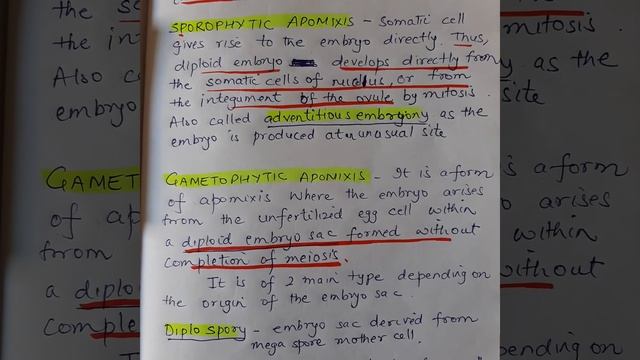 SPOROPHYTIC APOMIXIS - Somatic cell
gives rise to the embryo directly. Thus,
diploid embryo develops directly from
the somatic cells of nucleus, or from
the integument of the ovule by mitosis.
Also called adventitious embryony as the
embryo is produced at unusual site
GAMETOPHYTIC APONIXIS - It is a form
of apomixis where the embryo arises
from the unfertilized egg cell within
a diploid embryo sac formed without
completion of meiosis.
It is of 2 main type depending on
the origin of the embryo sac.
Diplospory - embryo sac derived from
mega spore mother cell.